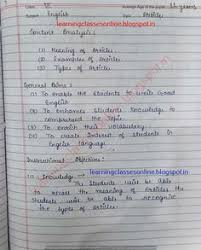 Class VI Average Age of the pupil 12 years
Subject English Topic Articles
learningclassesonline.blogspot.in
Content Analysis:
(1) Meaning of Articles
(2) Examples of Articles
(3) Types of Articles
General Aims:
(1) To enable the students to write Good English
(2) To enhance students knowledge to comprehend the Topic
(3) To enrich their vocabulary
(4) To create Interest of students in English language
learningclassesonline.blogspot.in
Instructional Objectives:
1. Knowledge → The students will be able
to recall the meaning of Articles. The
students will be able to recognise
the types of Articles.
learningclassesonline.blogspot.in